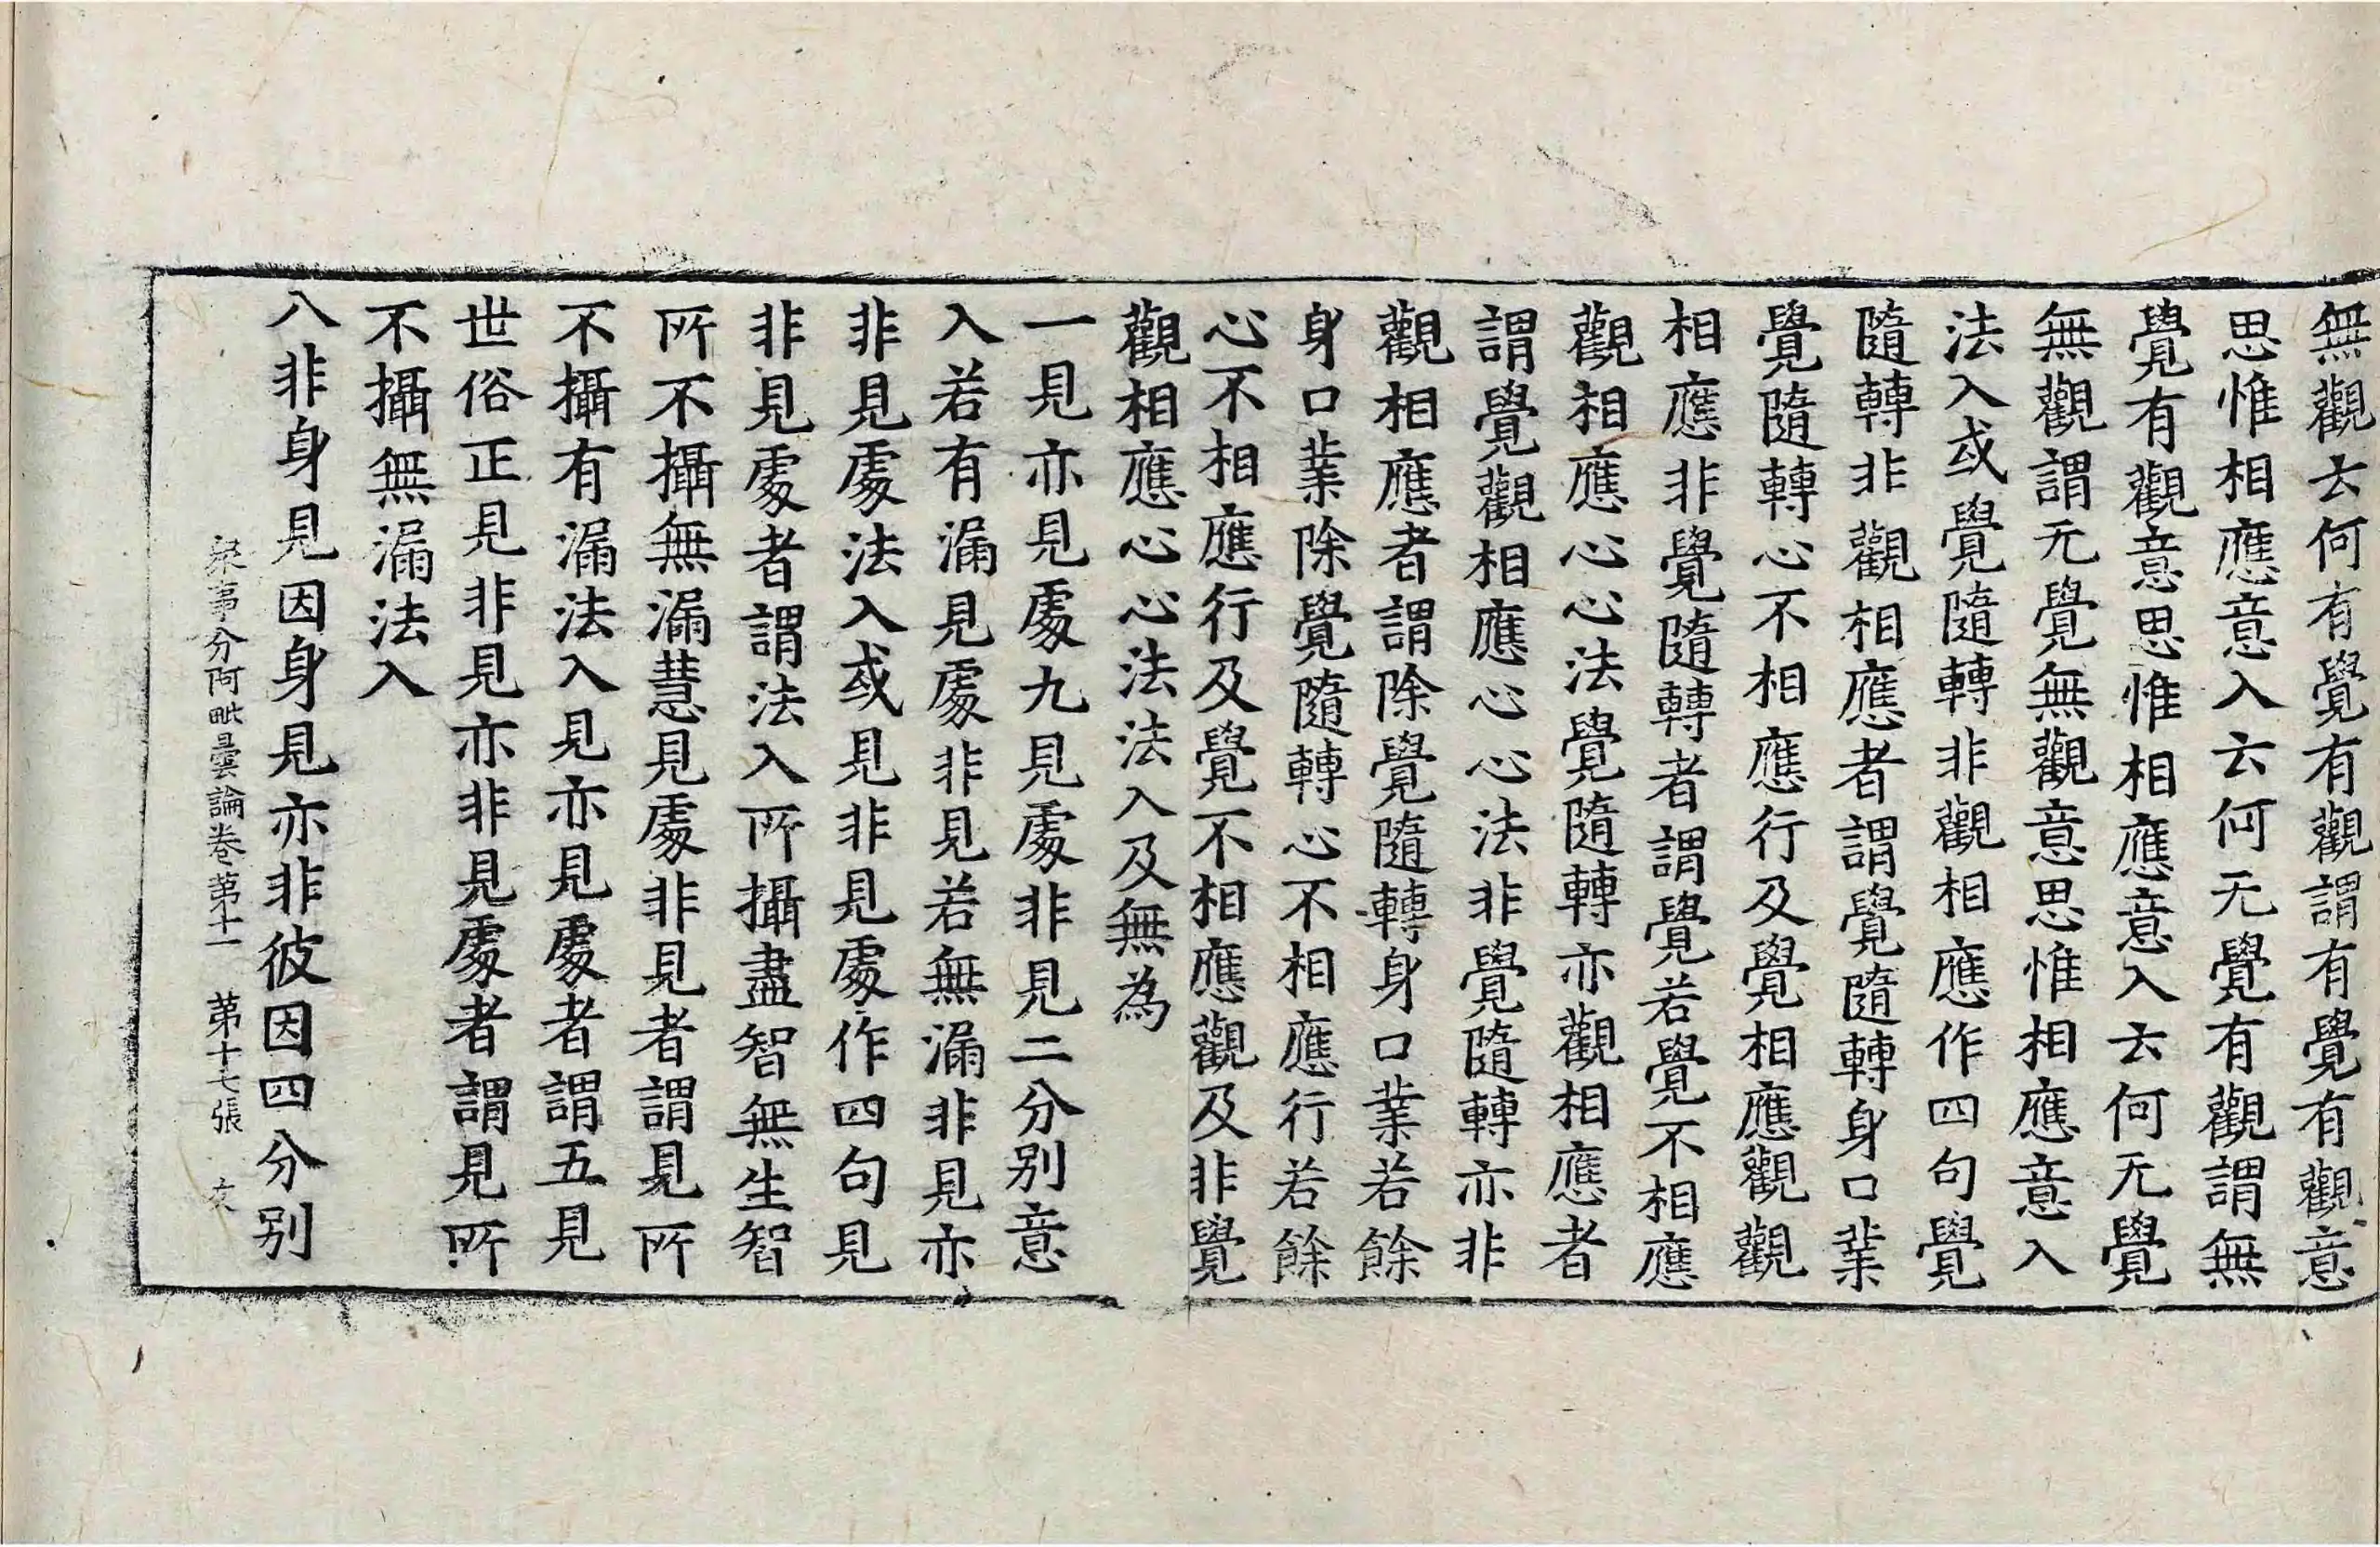 無觀云何有覺有觀謂有覺有觀意
思惟相應意入云何无覺有觀謂無
覺有觀意思惟相應意入云何无覺
無觀謂无覺無觀意思惟相應意入
法入或覺隨轉非觀相應作四句覺
隨轉非觀相應者謂覺隨轉身口業
覺隨轉心不相應行及覺相應觀觀
相應非覺隨轉者謂覺若覺不相應
觀相應心心法覺隨轉亦觀相應者
謂覺觀相應心心法非覺隨轉亦非
觀相應者謂除覺隨轉身口業若餘
身口業除覺隨轉心不相應行若餘
心不相應行及覺不相應觀及非覺
觀相應心心法法入及無為
一見亦見處九見處非見二分別意
入若有漏見處非見若無漏非見亦
非見處法入或見非見處作四句見
非見處者謂法入所攝盡智無生智
所不攝無漏慧見處非見者謂見所
不攝有漏法入見亦見處者謂五見
世俗正見非見亦非見處者謂見所
不攝無漏法入
八非身見因身見亦非彼因四分別
衆事分阿毗曇論卷第十一 第十七張